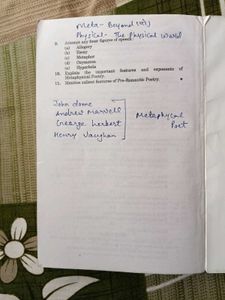 Meta- Beyond (से)
Physical- The Physical World
9. Discuss any four figures of speech
(a) Allegory
(b) Irony
(c) Metaphor
(d) Oxymoron
(e) Hyperbole
10. Explain the important features and exponents of
Metaphysical Poetry.
11. Mention salient features of Pre-Romantic Poetry.
John donne
Andrew Marvell
George Herbert
Henry Vaughan
Metaphysical
Poet